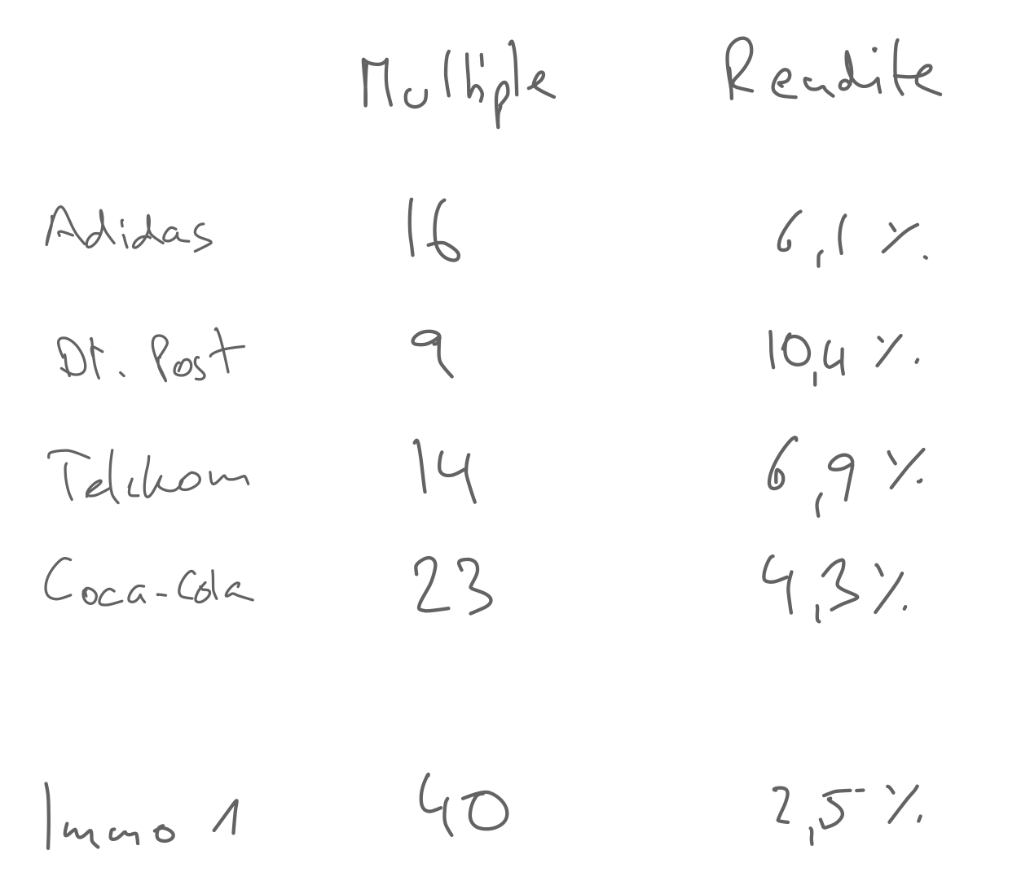 Multiple Rendite
Adidas 16 6,1 %
Dt. Post 9 10,4 %
Telekom 14 6,9 %
Coca-Cola 23 4,3 %
Immo 1 40 2,5 %